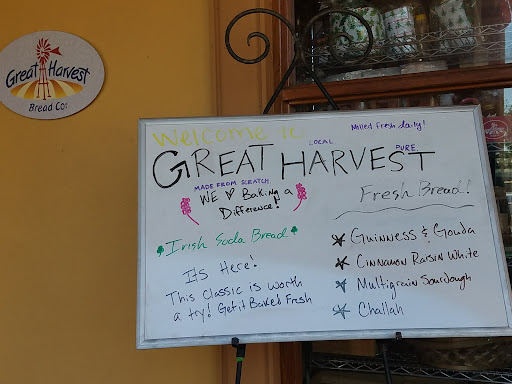 Great Harvest
Bread Co.
Welcome to
Milled fresh daily!
LOCAL
GREAT HARVEST
PURE
MADE FROM SCRATCH
WE ♥ Baking a
Difference!
Fresh Bread!
Irish Soda Bread
Its Here!
This Classic is worth
a try! Get it Baked Fresh
Guinness & Gouda
Cinnamon Raisin White
Multigrain Sourdough
Challah